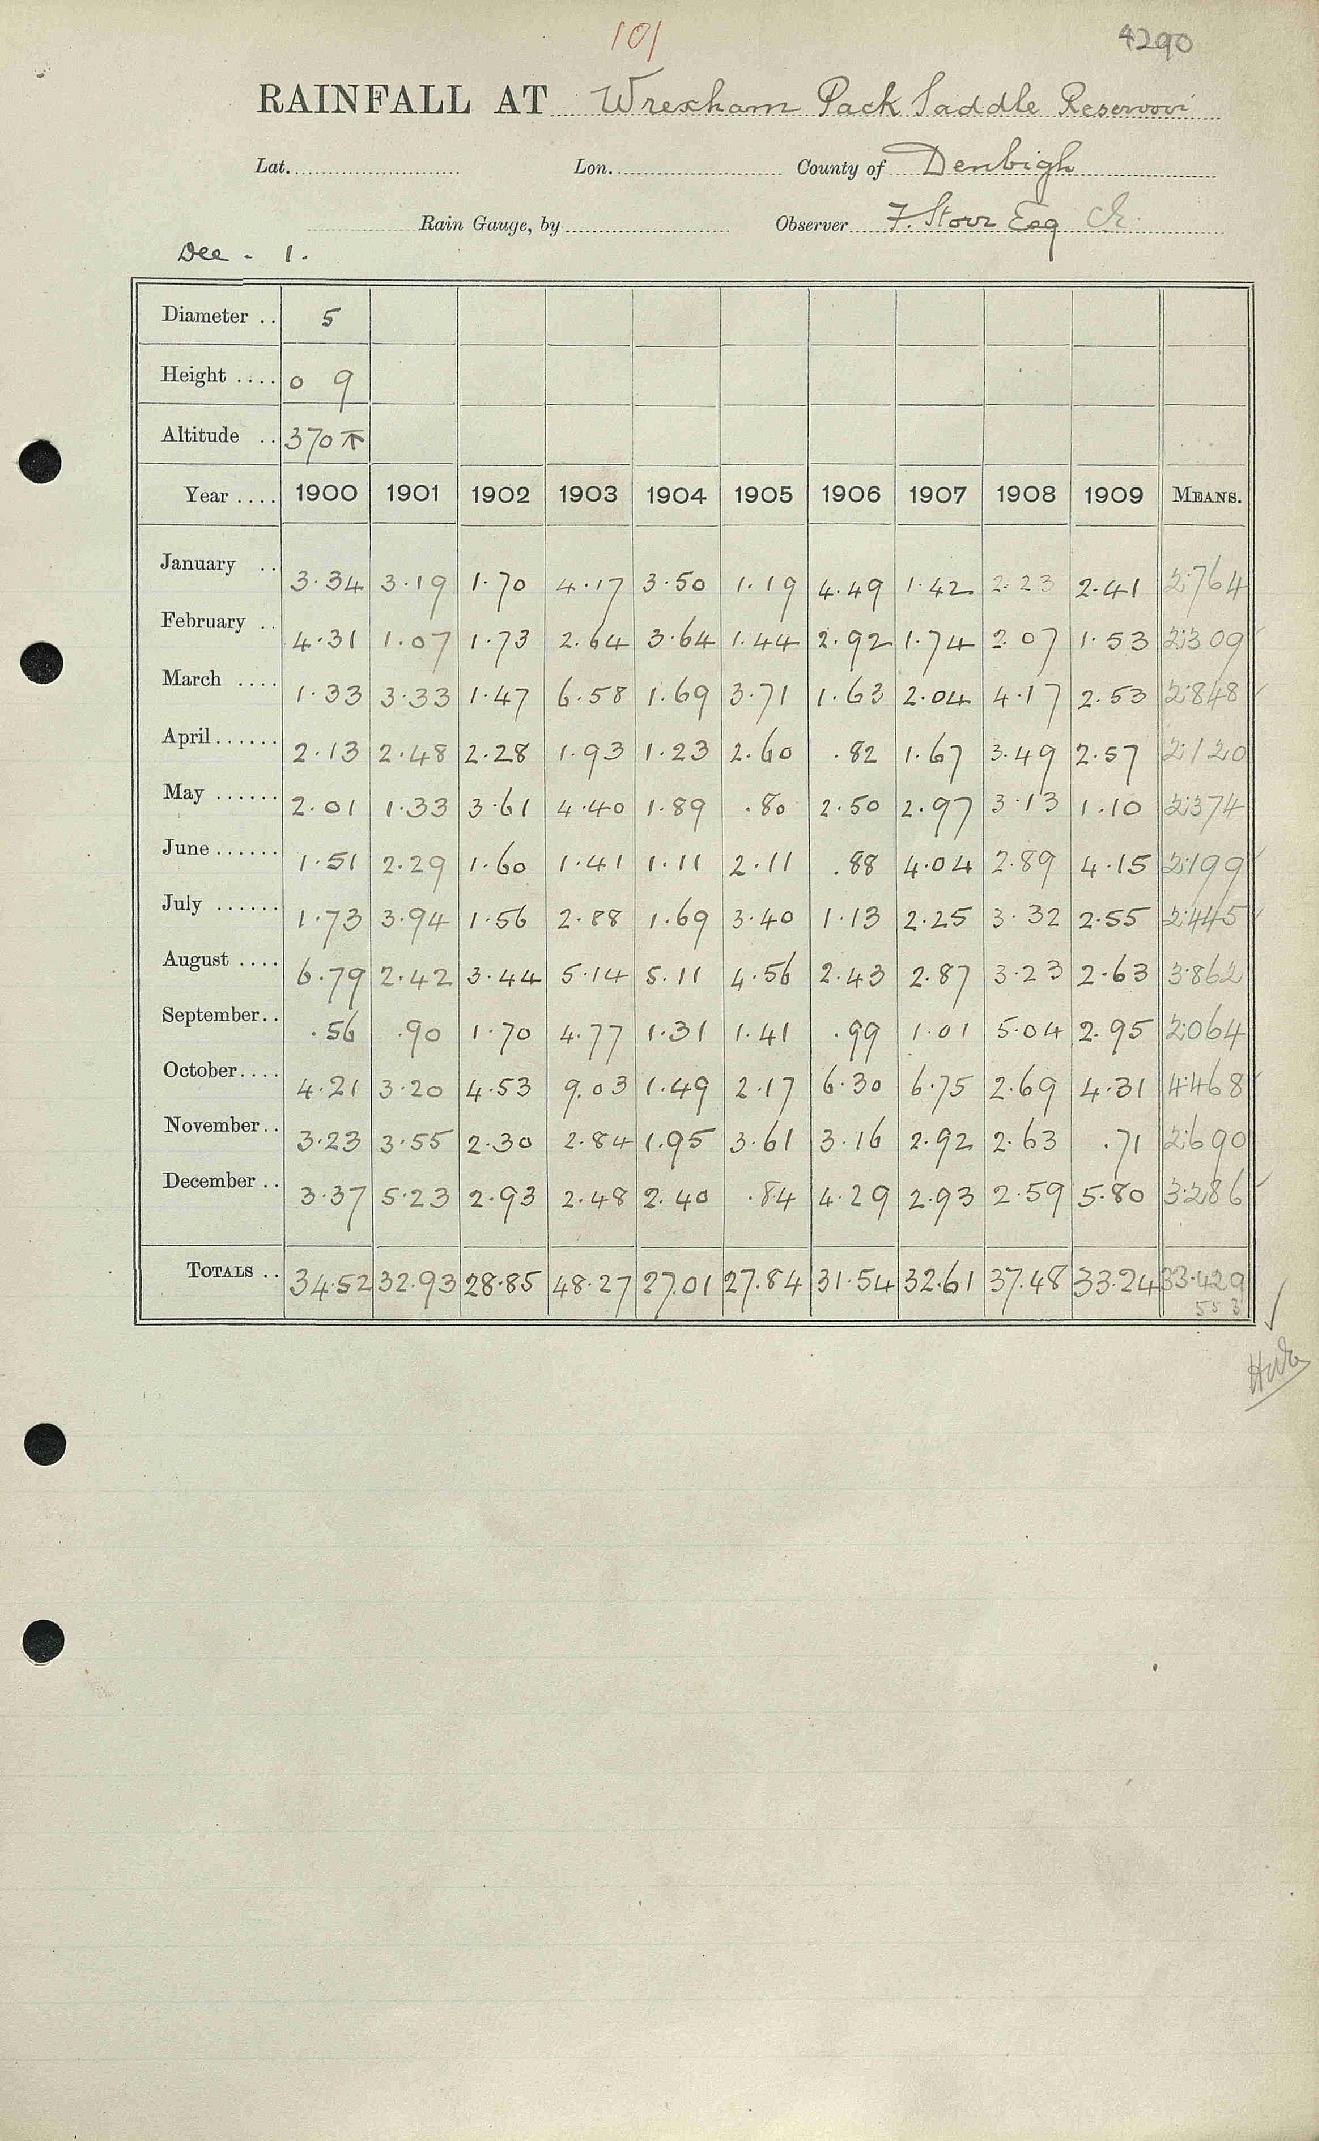 101
4290
RAINFALL AT Wrexham Pack Saddle Reservoir
Lat. Lon. County of Denbigh
Rain Gauge, by Observer F. Storr Esq
Dec - 1.
Diameter .. 5
Height .... 0 9
Altitude .. 370
Year .... 1900 1901 1902 1903 1904 1905 1906 1907 1908 1909 MEANS.
January .. 3.34 3.19 1.70 4.17 3.50 1.19 4.49 1.42 2.23 2.41 2.764
February .. 4.31 1.07 1.73 2.64 3.64 1.44 2.92 1.74 2.07 1.53 2.309
March .... 1.33 3.33 1.47 6.58 1.69 3.71 1.63 2.04 4.17 2.53 2.848
April...... 2.13 2.48 2.28 1.93 1.23 2.60 .82 1.67 3.49 2.57 2.120
May ...... 2.01 1.33 3.61 4.40 1.89 .80 2.50 2.97 3.13 1.10 2.374
June...... 1.51 2.29 1.60 1.41 1.11 2.11 .88 4.04 2.89 4.15 2.199
July ...... 1.73 3.94 1.56 2.88 1.69 3.40 1.13 2.25 3.32 2.55 2.445
August .... 6.79 2.42 3.44 5.14 5.11 4.56 2.43 2.87 3.23 2.63 3.862
September.. .56 .90 1.70 4.77 1.31 1.41 .99 1.01 5.04 2.95 2.064
October.... 4.21 3.20 4.53 9.03 1.49 2.17 6.30 6.75 2.69 4.31 4.468
November.. 3.23 3.55 2.30 2.84 1.95 3.61 3.16 2.92 2.63 .71 2.690
December .. 3.37 5.23 2.93 2.48 2.40 .84 4.29 2.93 2.59 5.80 3.286
TOTALS .. 34.52 32.93 28.85 48.27 27.01 27.84 31.54 32.61 37.48 33.24 33.429